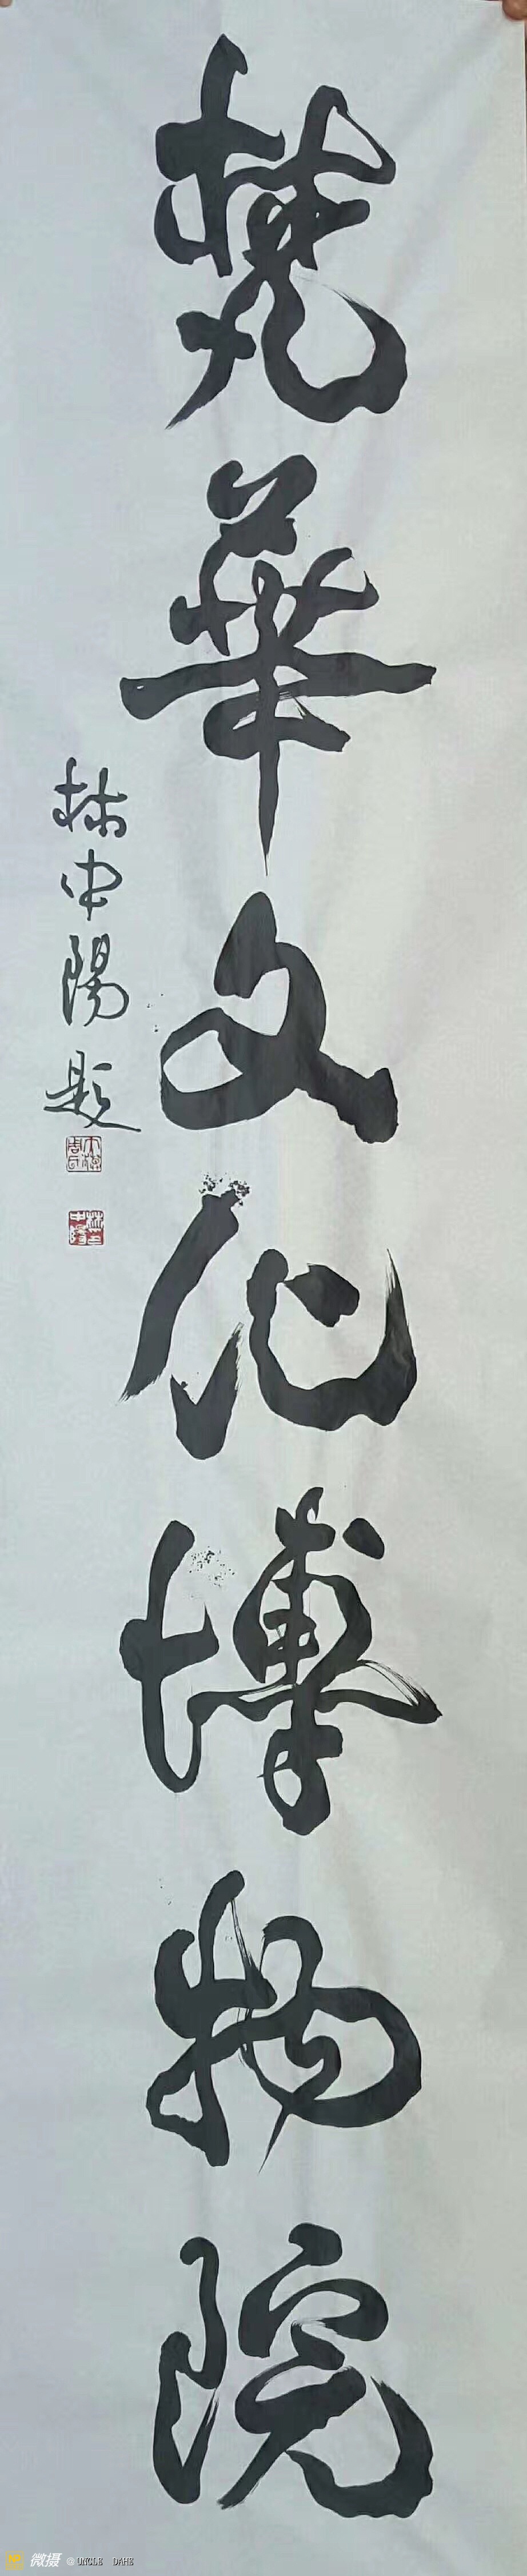 梵華文化博物院
林中陽題
微摄 @UNCLE DAHE